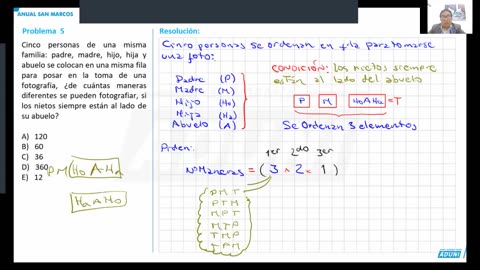 ANUAL SAN MARCOS
Problema 5
Cinco personas de una misma
familia: padre, madre, hijo, hija y
abuelo se colocan en una misma fila
para posar en la toma de una
fotografía, ¿de cuántas maneras
diferentes se pueden fotografiar, si
los nietos siempre están al lado de
su abuelo?
A) 120
B) 60
C) 36
D) 360
E) 12
P M Ho A Ha
Ha A Ho
Resolución:
Cinco personas se ordenan en fila para tomarse
una foto:
Padre (P)
Madre (M)
Hijo (Ho)
Hija (Ha)
Abuelo (A)
CONDICIÓN: los nietos siempre
están al lado del abuelo
P M HoAHa = T
Se Ordenan 3 elementos
Piden:
1er 2do 3er
N° Maneras = (3 × 2 × 1)
P M T
P T M
M P T
M T P
T M P
T P M
ADUNI